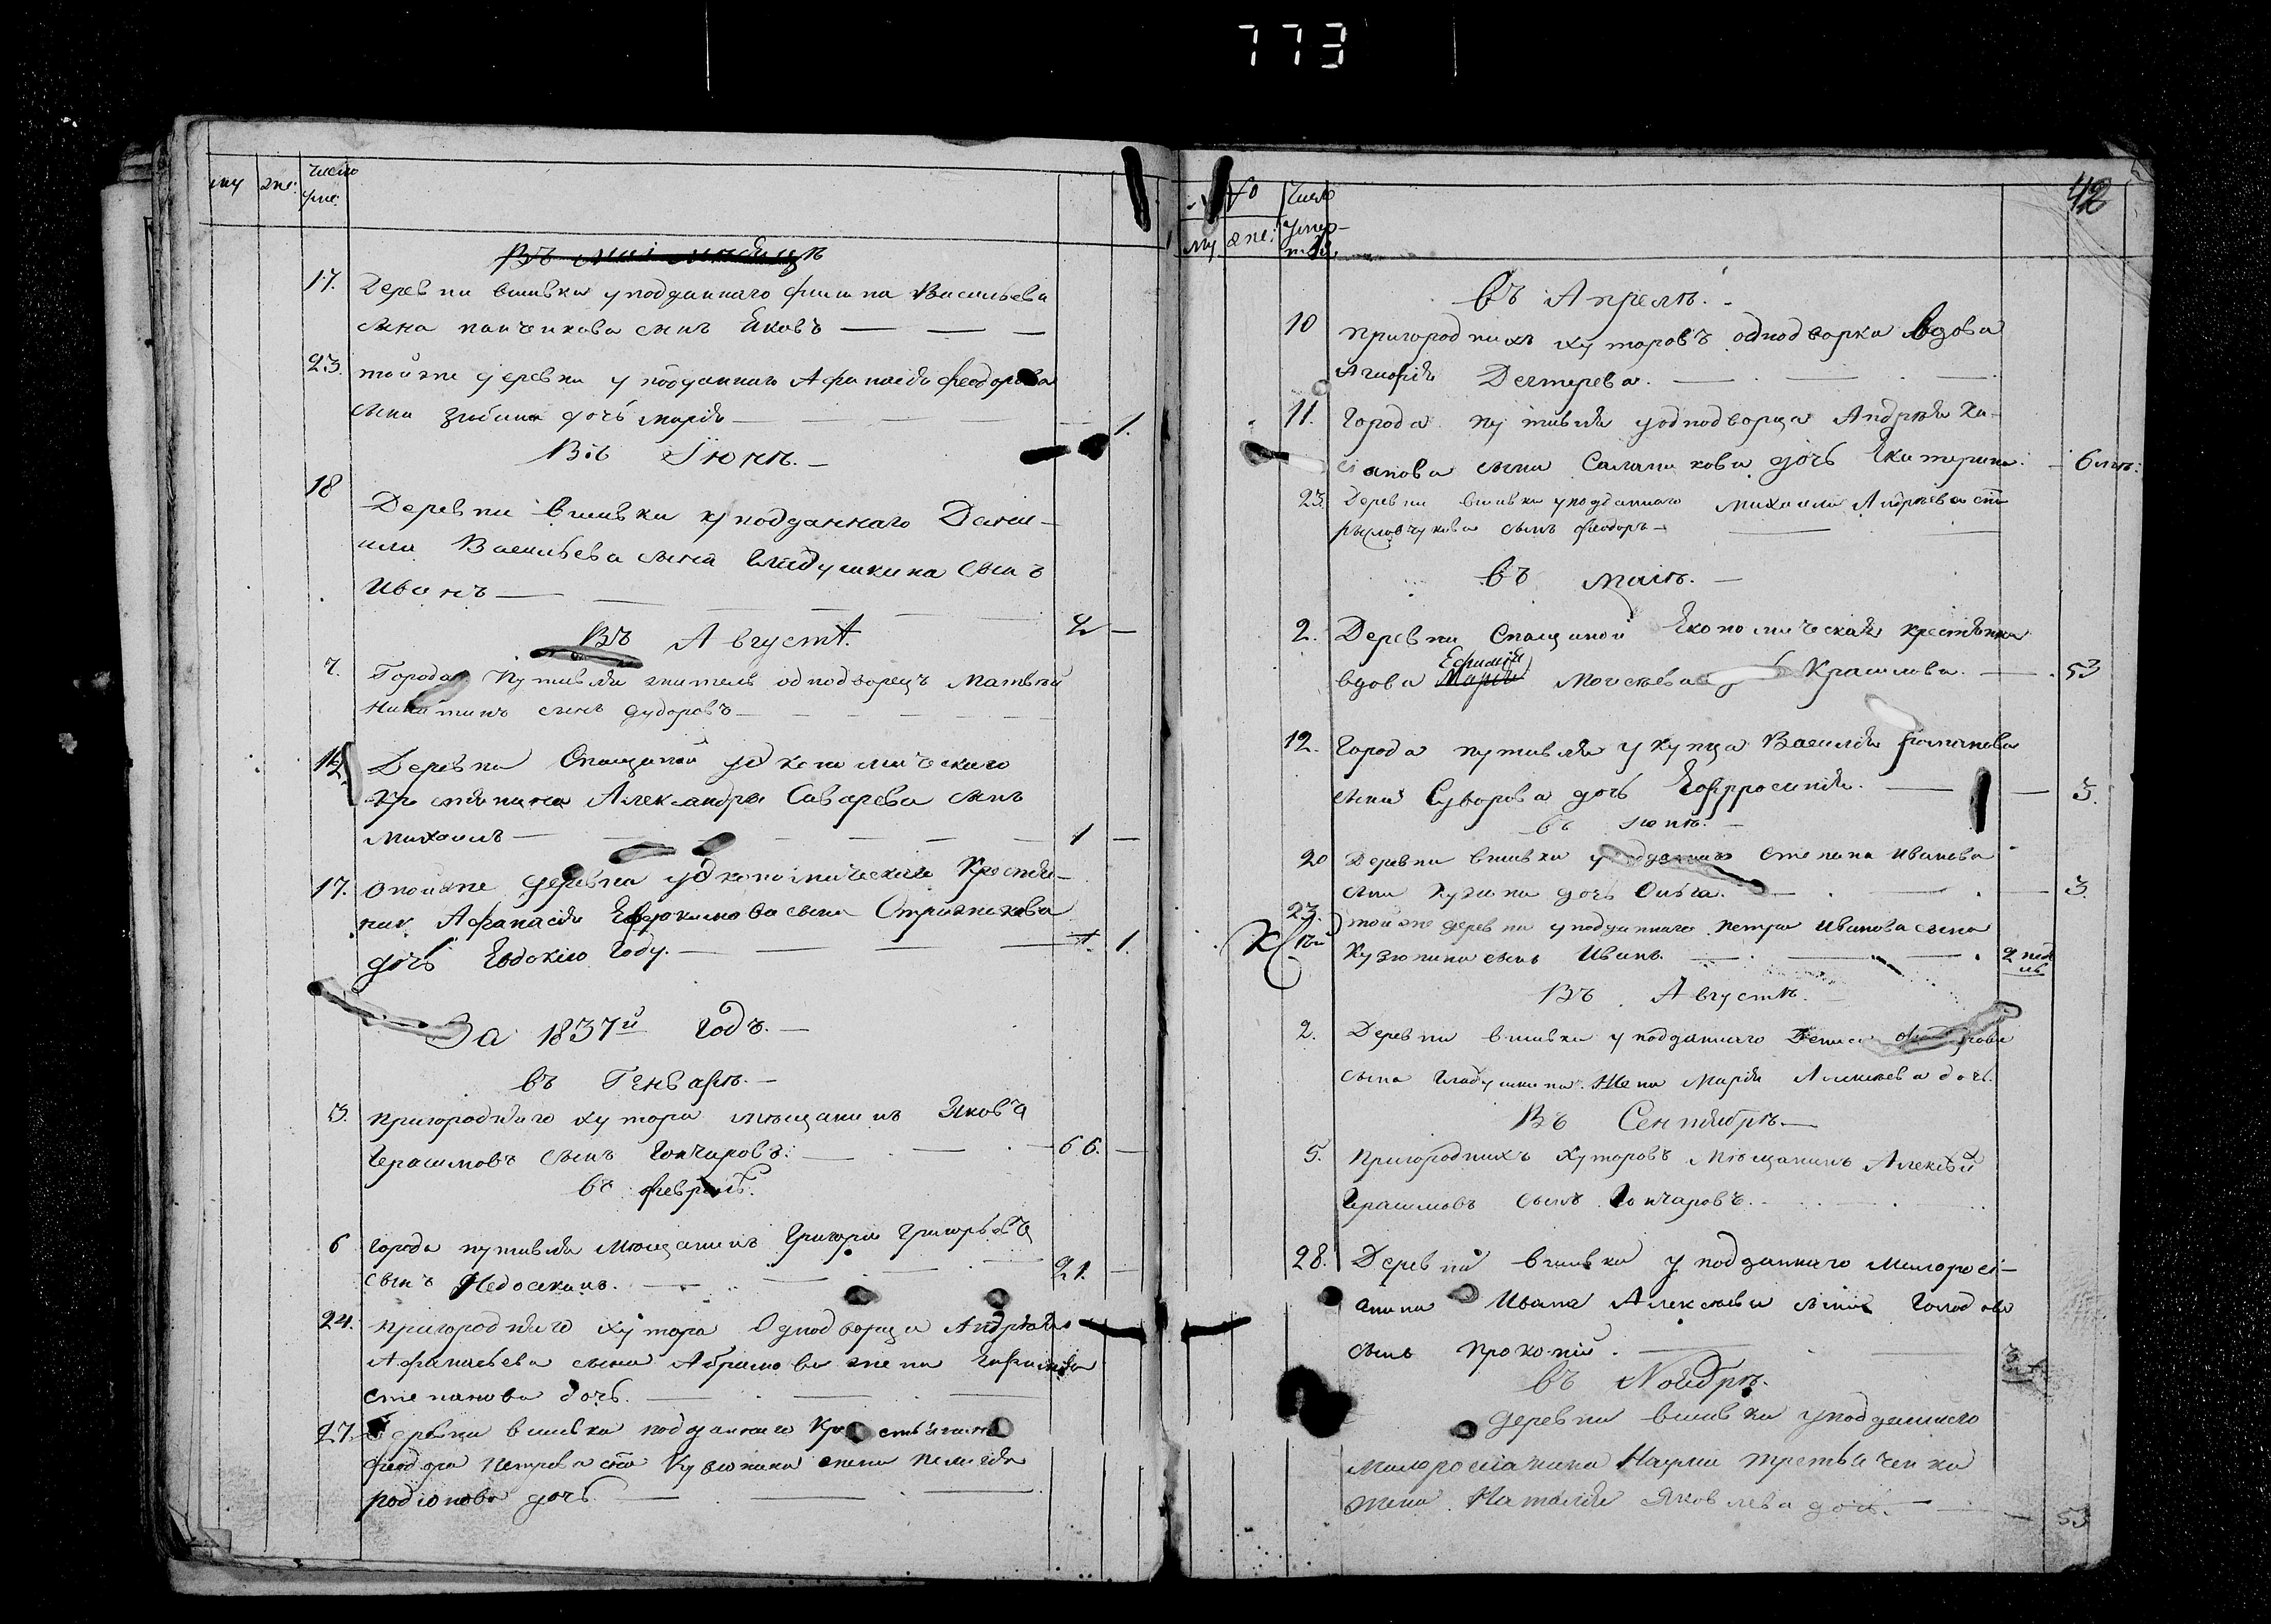 773
му же: число уме:
Въ маі мѣсяцъ
17. Деревни вшивки у подданнаго филипа Васильева
сына сынъ Яковъ
23. тойже деревни у подданнаго Афанасія феодорова
сына дочь марія 1.
Въ Іюнѣ.
18 Деревни вшивки у подданнаго Дани-
ила Васильева сына Гладушкина сынъ
Иванъ
Въ Августѣ.
7. Города Путивля житель однодворецъ Матвѣй
Никитинъ сынъ дудоровъ
12. Деревни Спащиной у экономическаго
Крестянина Александра Саварева сынъ
Михаилъ 1
17. Оной же деревни у экономическаго Крестя-
нина Афанасія Евдокимова сына Стрижикова
дочь Евдокія году. 1.
За 1837й Годъ.
въ Генварѣ.
3. Пригороднаго хутора мѣщанинъ Яковъ
Герасимовъ сынъ Гончаровъ. 66.
въ февралѣ.
6 Города путивля мѣщанинъ Григорій Григорьевъ
сынъ Недосекинъ. 21
24. Пригороднаго хутора Однодворца Андрѣя
Афанасьева сына Абрамова жена Евфимія
степанова дочь.
27. Деревни вшивки подданнаго Крестьянина
феодора Петрова сна Кузюкина жена Пелагея
родіонова дочь.
42
му же: число умер-
въ Апрелѣ.
10 Пригородныхъ хуторовъ однодворка вдова
Агафія Дегтерева.
11. Города путивля у однодворца Андрѣя Ка-
сіанова сына Саланикова дочь Екатерина. 6 лѣтъ:
23. Деревни вшивки у подданнаго михаила Андрѣева сна
сынъ феодоръ
въ маіѣ.
2. Деревни Спащиной Економическая крестянка
Ефимія
вдова Марія Моисѣева Крашлова. 53
12. Города путивля у купца Василія романова
сына Суворова дочь Евфросинія. 3.
въ іюнѣ.
20 Деревни вшивки у подданнаго степана Иванова
сына дочь Ольга. 3.
23. той же деревни у подданнаго петра Иванова сына
Кузюкина сынъ Иванъ. 2 недѣль
Въ Августѣ.
2. Деревни вшивки у подданнаго Дениса
сына Гладушкина. Жена Марія Алексѣева дочь.
Въ Сентябрѣ.
5. Пригородныхъ Хуторовъ Мѣщанинъ Алексѣй
Герасимовъ сынъ Гончаровъ.
28. Деревни вшивки у подданнаго малоросі-
янина Ивана Алексѣева сына Голодова
сынъ Прокопій.
въ Ноябрѣ.
деревни вшивки у подданнаго
малоросіянина Наума третьяченка
жена Наталія Яковлева дочь. 53